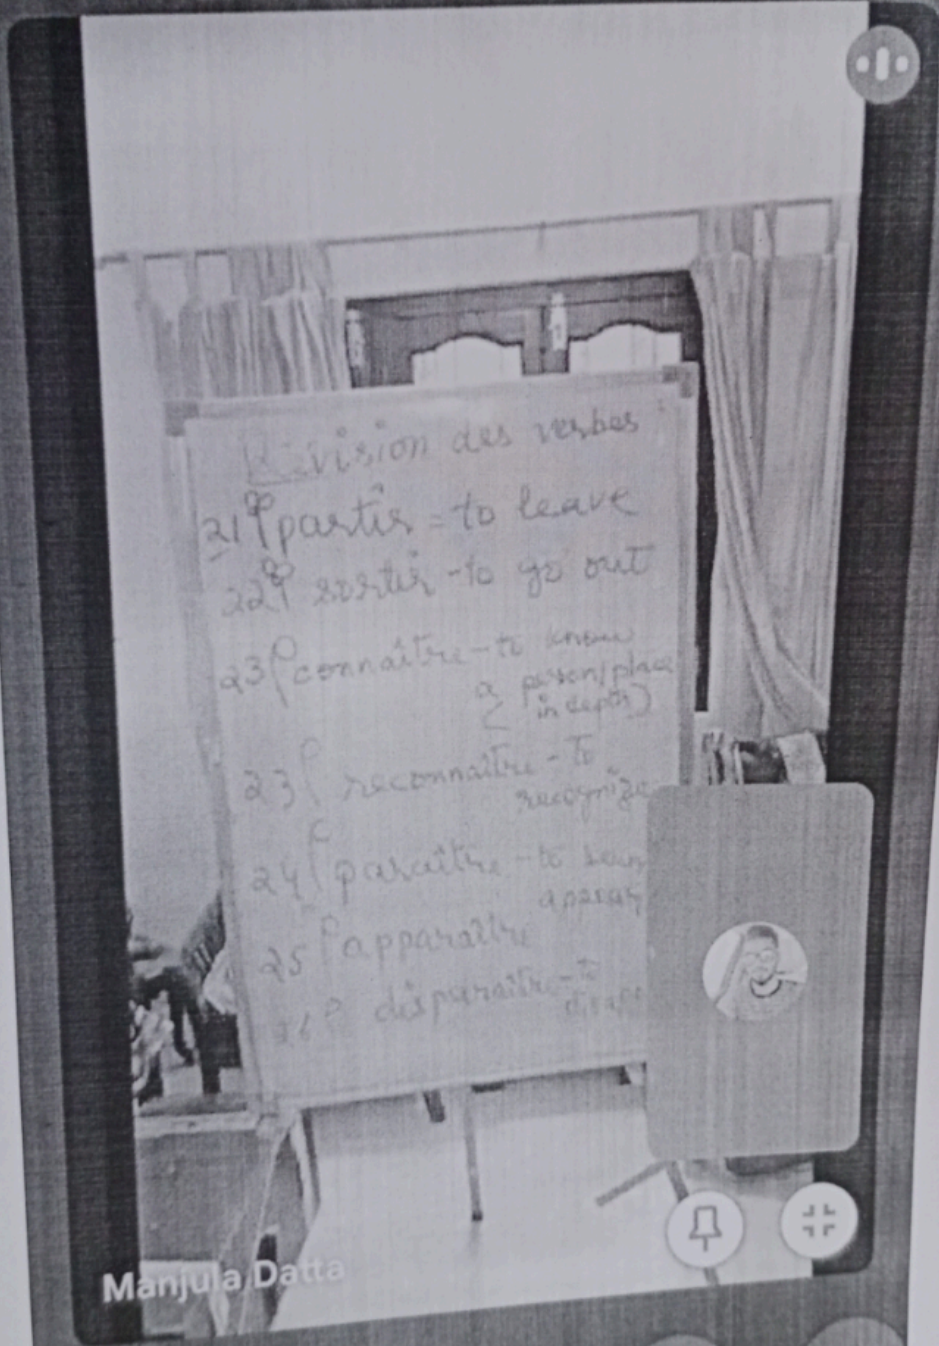 Révision des verbes
21 partir = to leave
22 sortir - to go out
23 connaître - to know
a person/place
( in depth)
23 reconnaître - to
recognize
24 paraître - to
appear
25 apparaître
disparaître - to
Manjula Datta